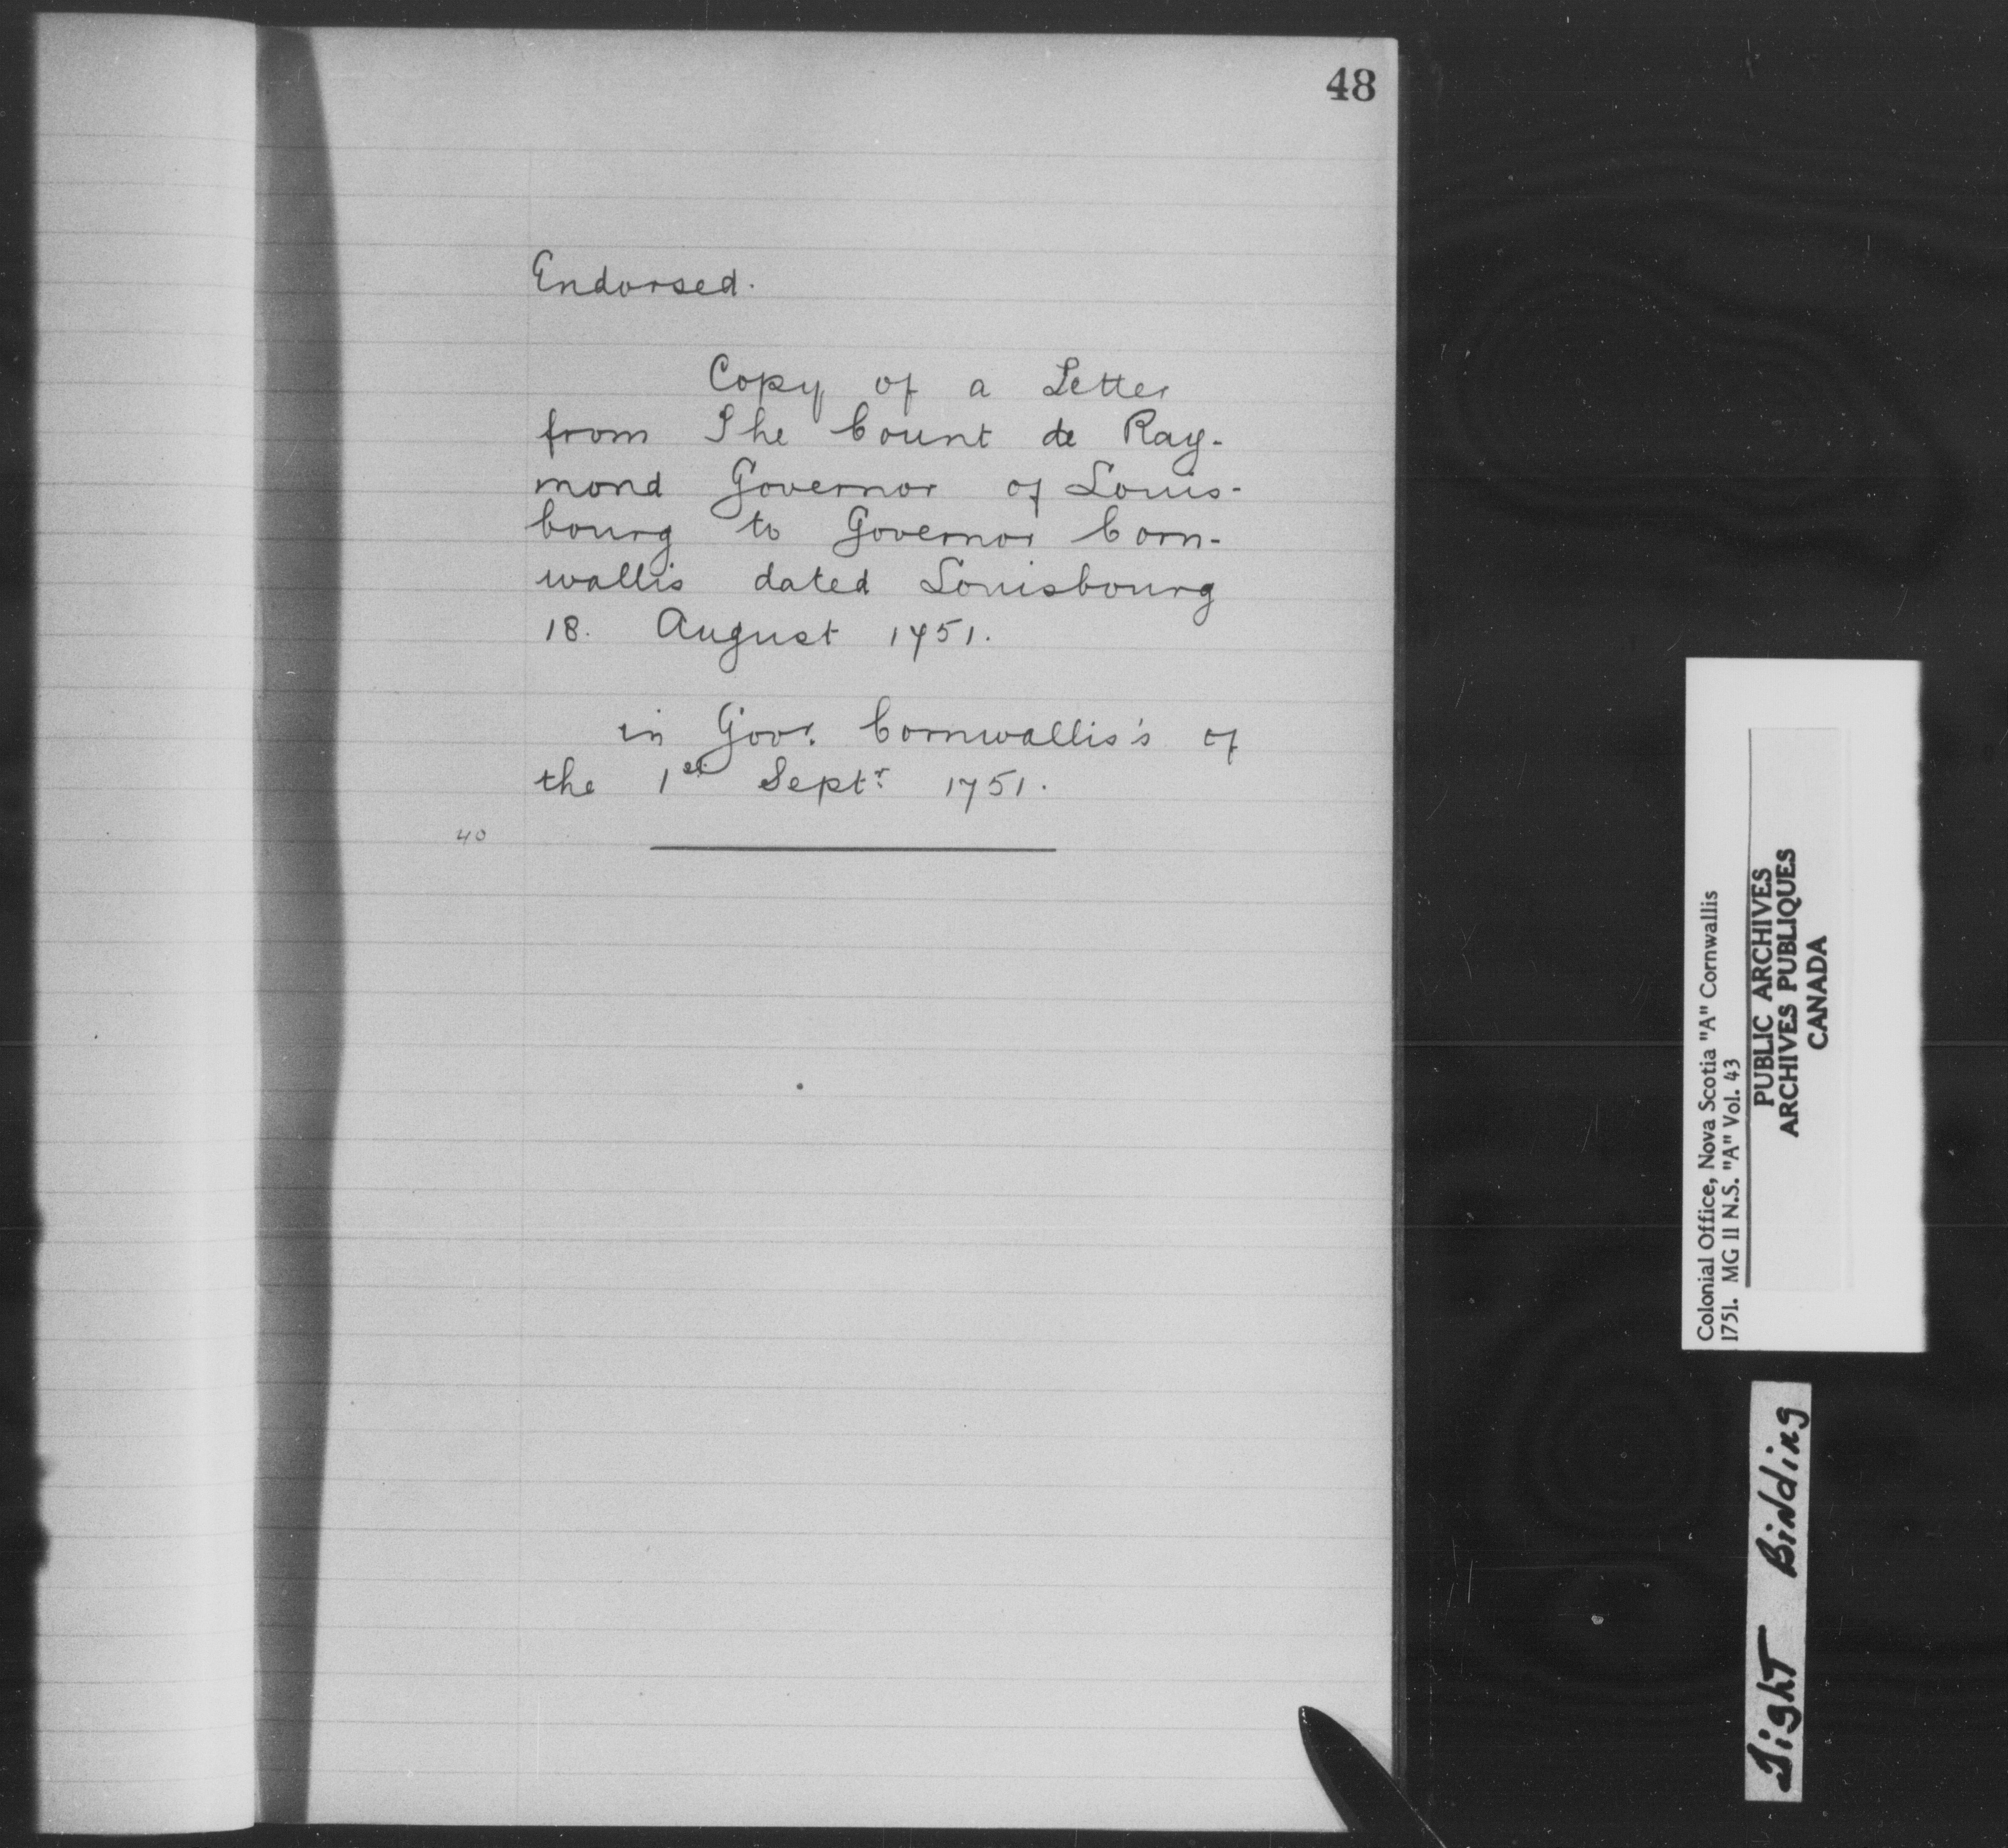 48
Endorsed.
Copy of a Letter
from The Count de Ray-
mond Governor of Louis-
bourg to Governor Corn-
wallis dated Louisbourg
18. August 1751.
in Govr. Cornwallis's of
the 1st Septr 1751.
40
Colonial Office, Nova Scotia "A" Cornwallis
1751. MG 11 N.S. "A" Vol. 43
PUBLIC ARCHIVES
ARCHIVES PUBLIQUES
CANADA
Tight Binding